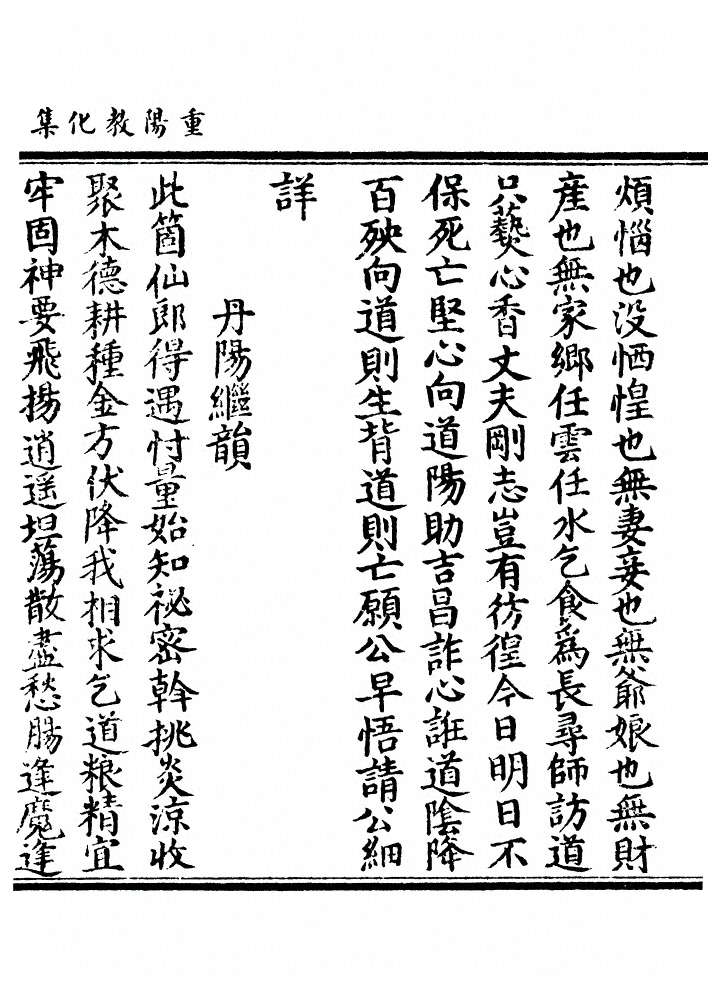 重陽教化集
煩惱也没恓惶也無妻妾也無爺娘也無財
産也無家鄉任雲任水乞食爲長尋師訪道
只爇心香丈夫剛志豈有彷徨今日明日不
保死亡堅心向道陽助吉昌詐心誑道陰降
百殃向道則生背道則亡願公早悟請公細
詳
丹陽繼韻
此箇仙郎得遇忖量始知祕密斡挑炎涼收
聚木德耕種金方伏降我相求乞道粮精宜
牢固神要飛揚逍遥坦蕩散盡愁腸逢魔逢